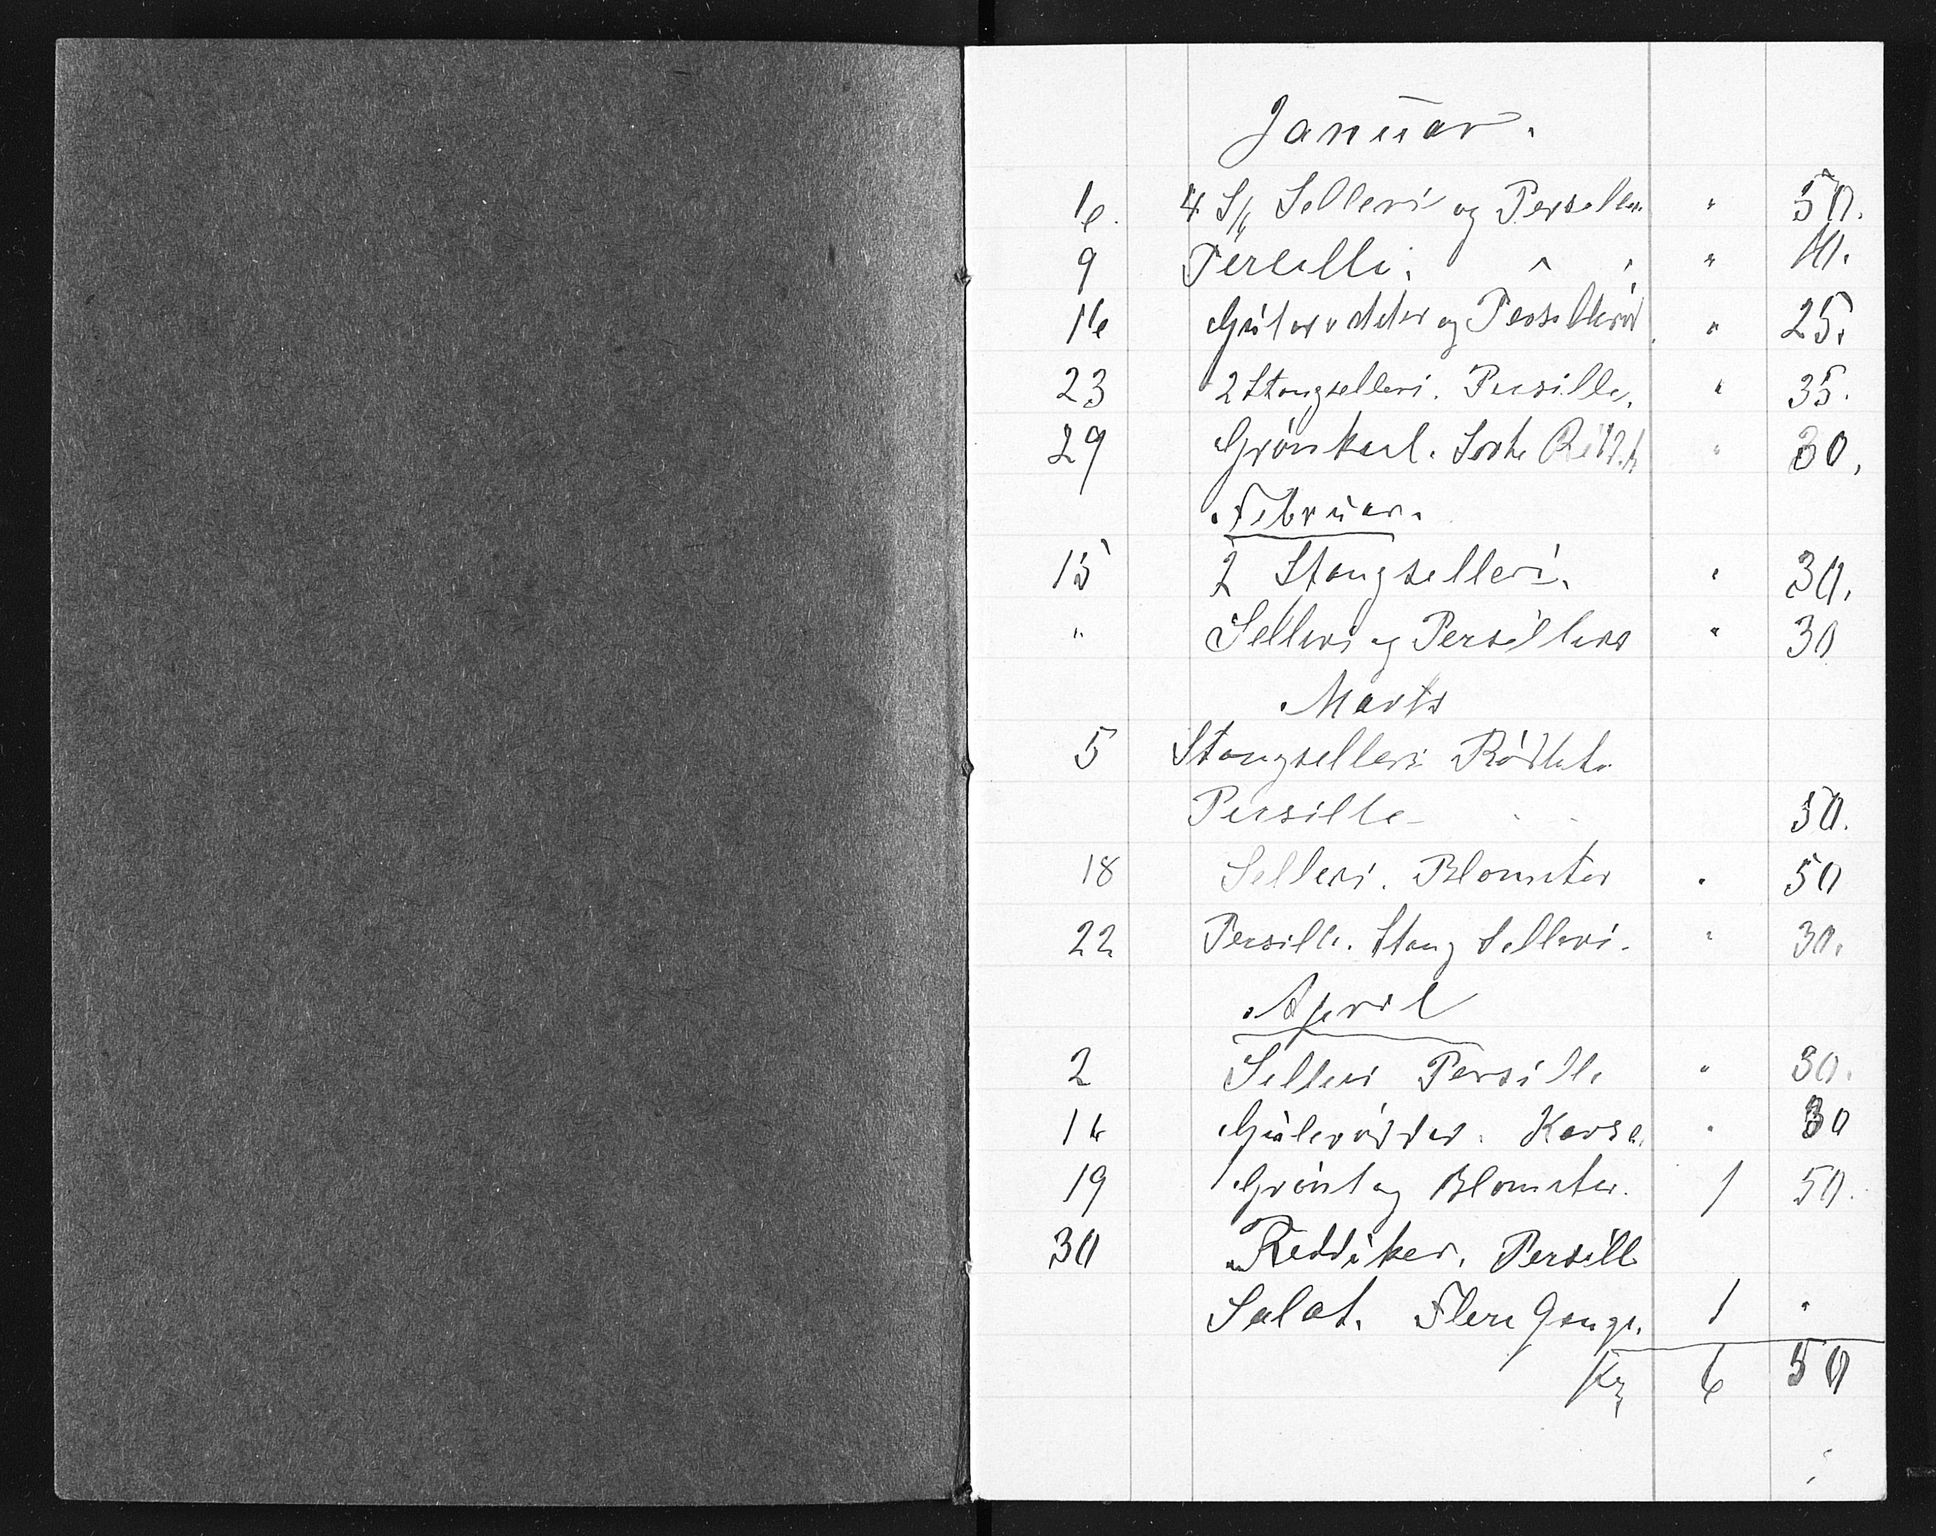 Januar.
6. 4 Selleri og Persille " 50.
9 Persille. " "
16 Gulerødder og " 25.
23 2 Stangselleri. Persille. " 35.
29 Grønkaal. " 30.
Februar.
15 2 Stangselleri. " 30.
" Selleri og " 30
Marts
5 Stangselleri
Persille 50.
18 Selleri. Blomster " 50
22 Persille. Stang Selleri. " 30.
April
2 Selleri Persille " 30.
Gulerødder. Karse. " 30
19 Grønt og Blomster. 1 50.
30 Reddiker. Persille
Salat. Flere Gange. 1 "
Kr 6 50